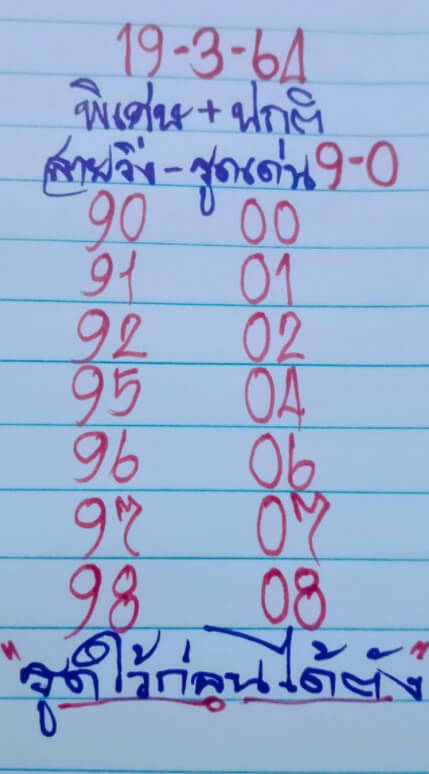 19-3-64
พิเศษ + ปกติ
สายวิ่ง - รูดเด่น 9-0
90 00
91 01
92 02
95 04
96 06
97 07
98 08
"รูดไว้ก่อนได้ตัง"